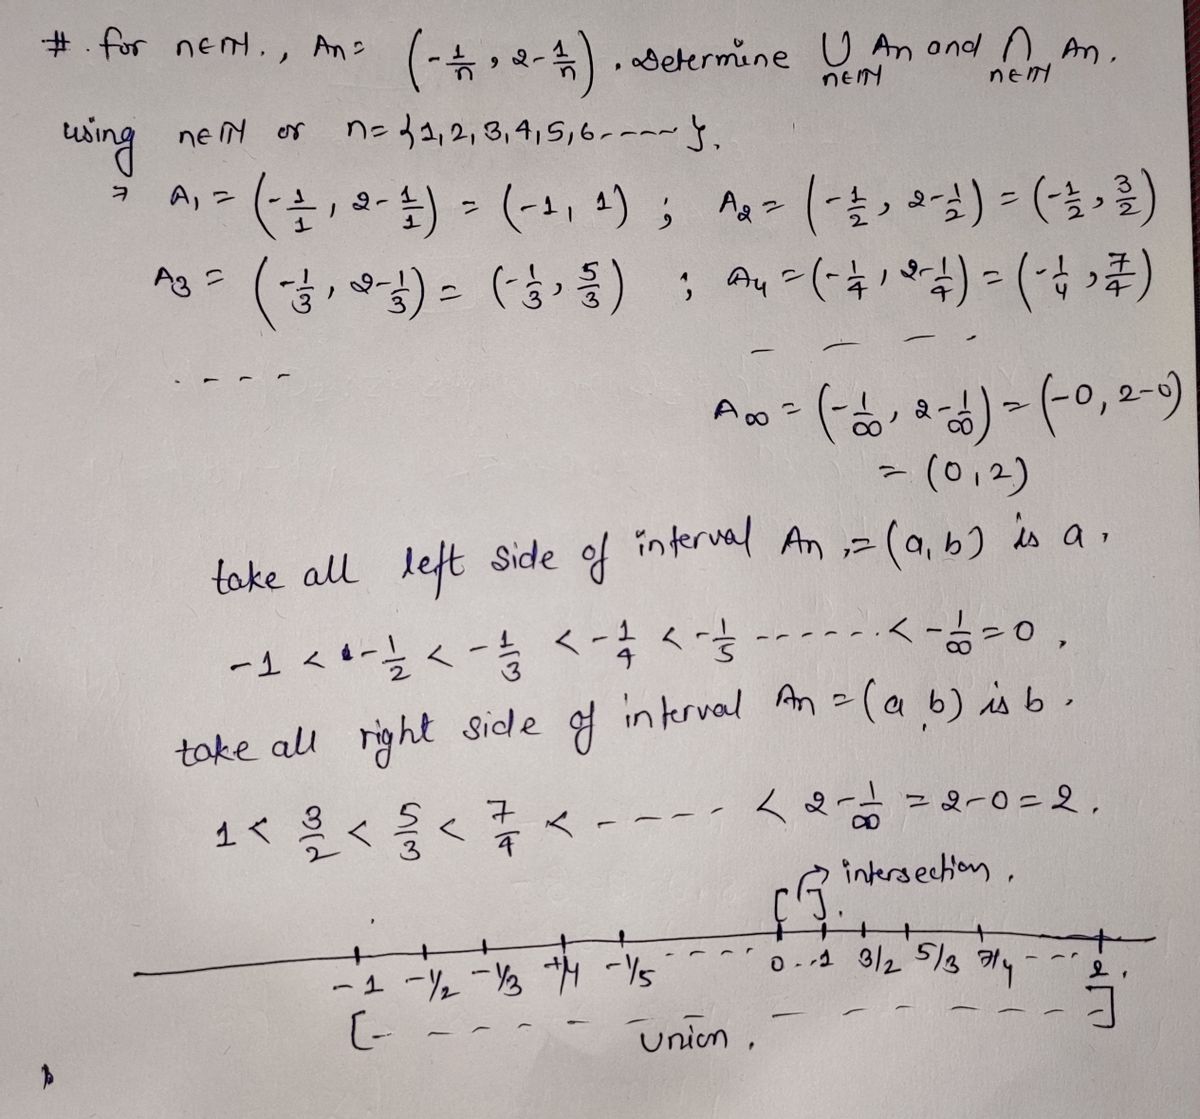 #. for n∈ℕ., An = (-1/n, 2-1/n). Determine ∪ n∈ℕ An and ∩ n∈ℕ An.
using n∈ℕ or n={1,2,3,4,5,6-----}.
⇒ A₁ = (-1/1, 2-1/1) = (-1, 1) ; A₂ = (-1/2, 2-1/2) = (-1/2, 3/2)
A₃ = (-1/3, 2-1/3) = (-1/3, 5/3) ; A₄ = (-1/4, 2-1/4) = (-1/4, 7/4)
----
----
A∞ = (-1/∞, 2-1/∞) = (-0, 2-0)
= (0,2)
take all left side of interval An,=(a,b) is a.
-1 < -1/2 < -1/3 < -1/4 < -1/5 ------< -1/∞=0,
take all right side of interval An =(a,b) is b.
1 < 3/2 < 5/3 < 7/4 < ---- < 2-1/∞ = 2-0=2.
[ ] → intersection.
-1 -1/2 -1/3 -1/4 -1/5 ---- 0..1 3/2 5/3 7/4 --- 2.
[- - - - - Union. - - - - - -]